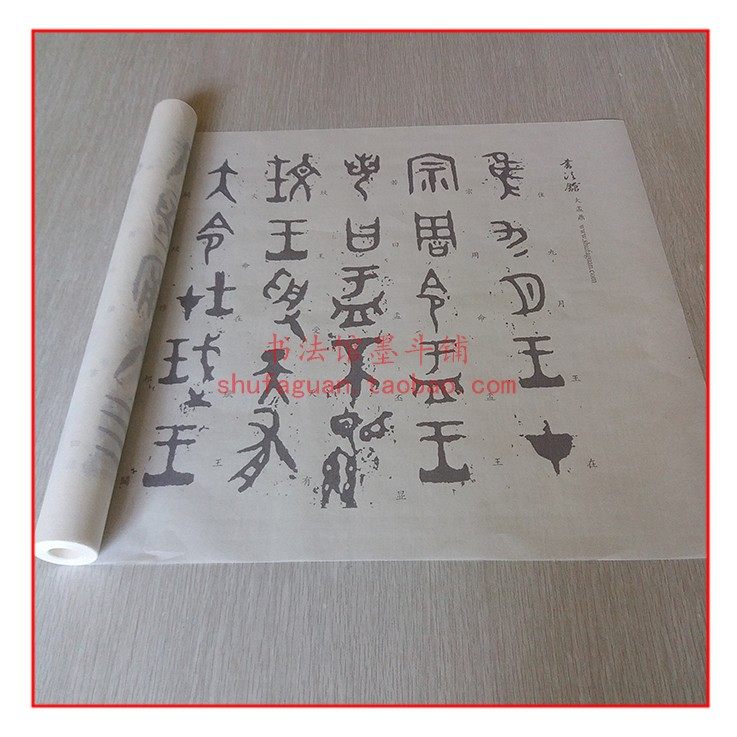 書法館
大盂鼎
www.shufaguan.com
隹九月王在
宗周令盂王
若曰盂不顯
玟王受天有
大令在珷王
书法馆墨斗铺
shufaguan.taobao.com